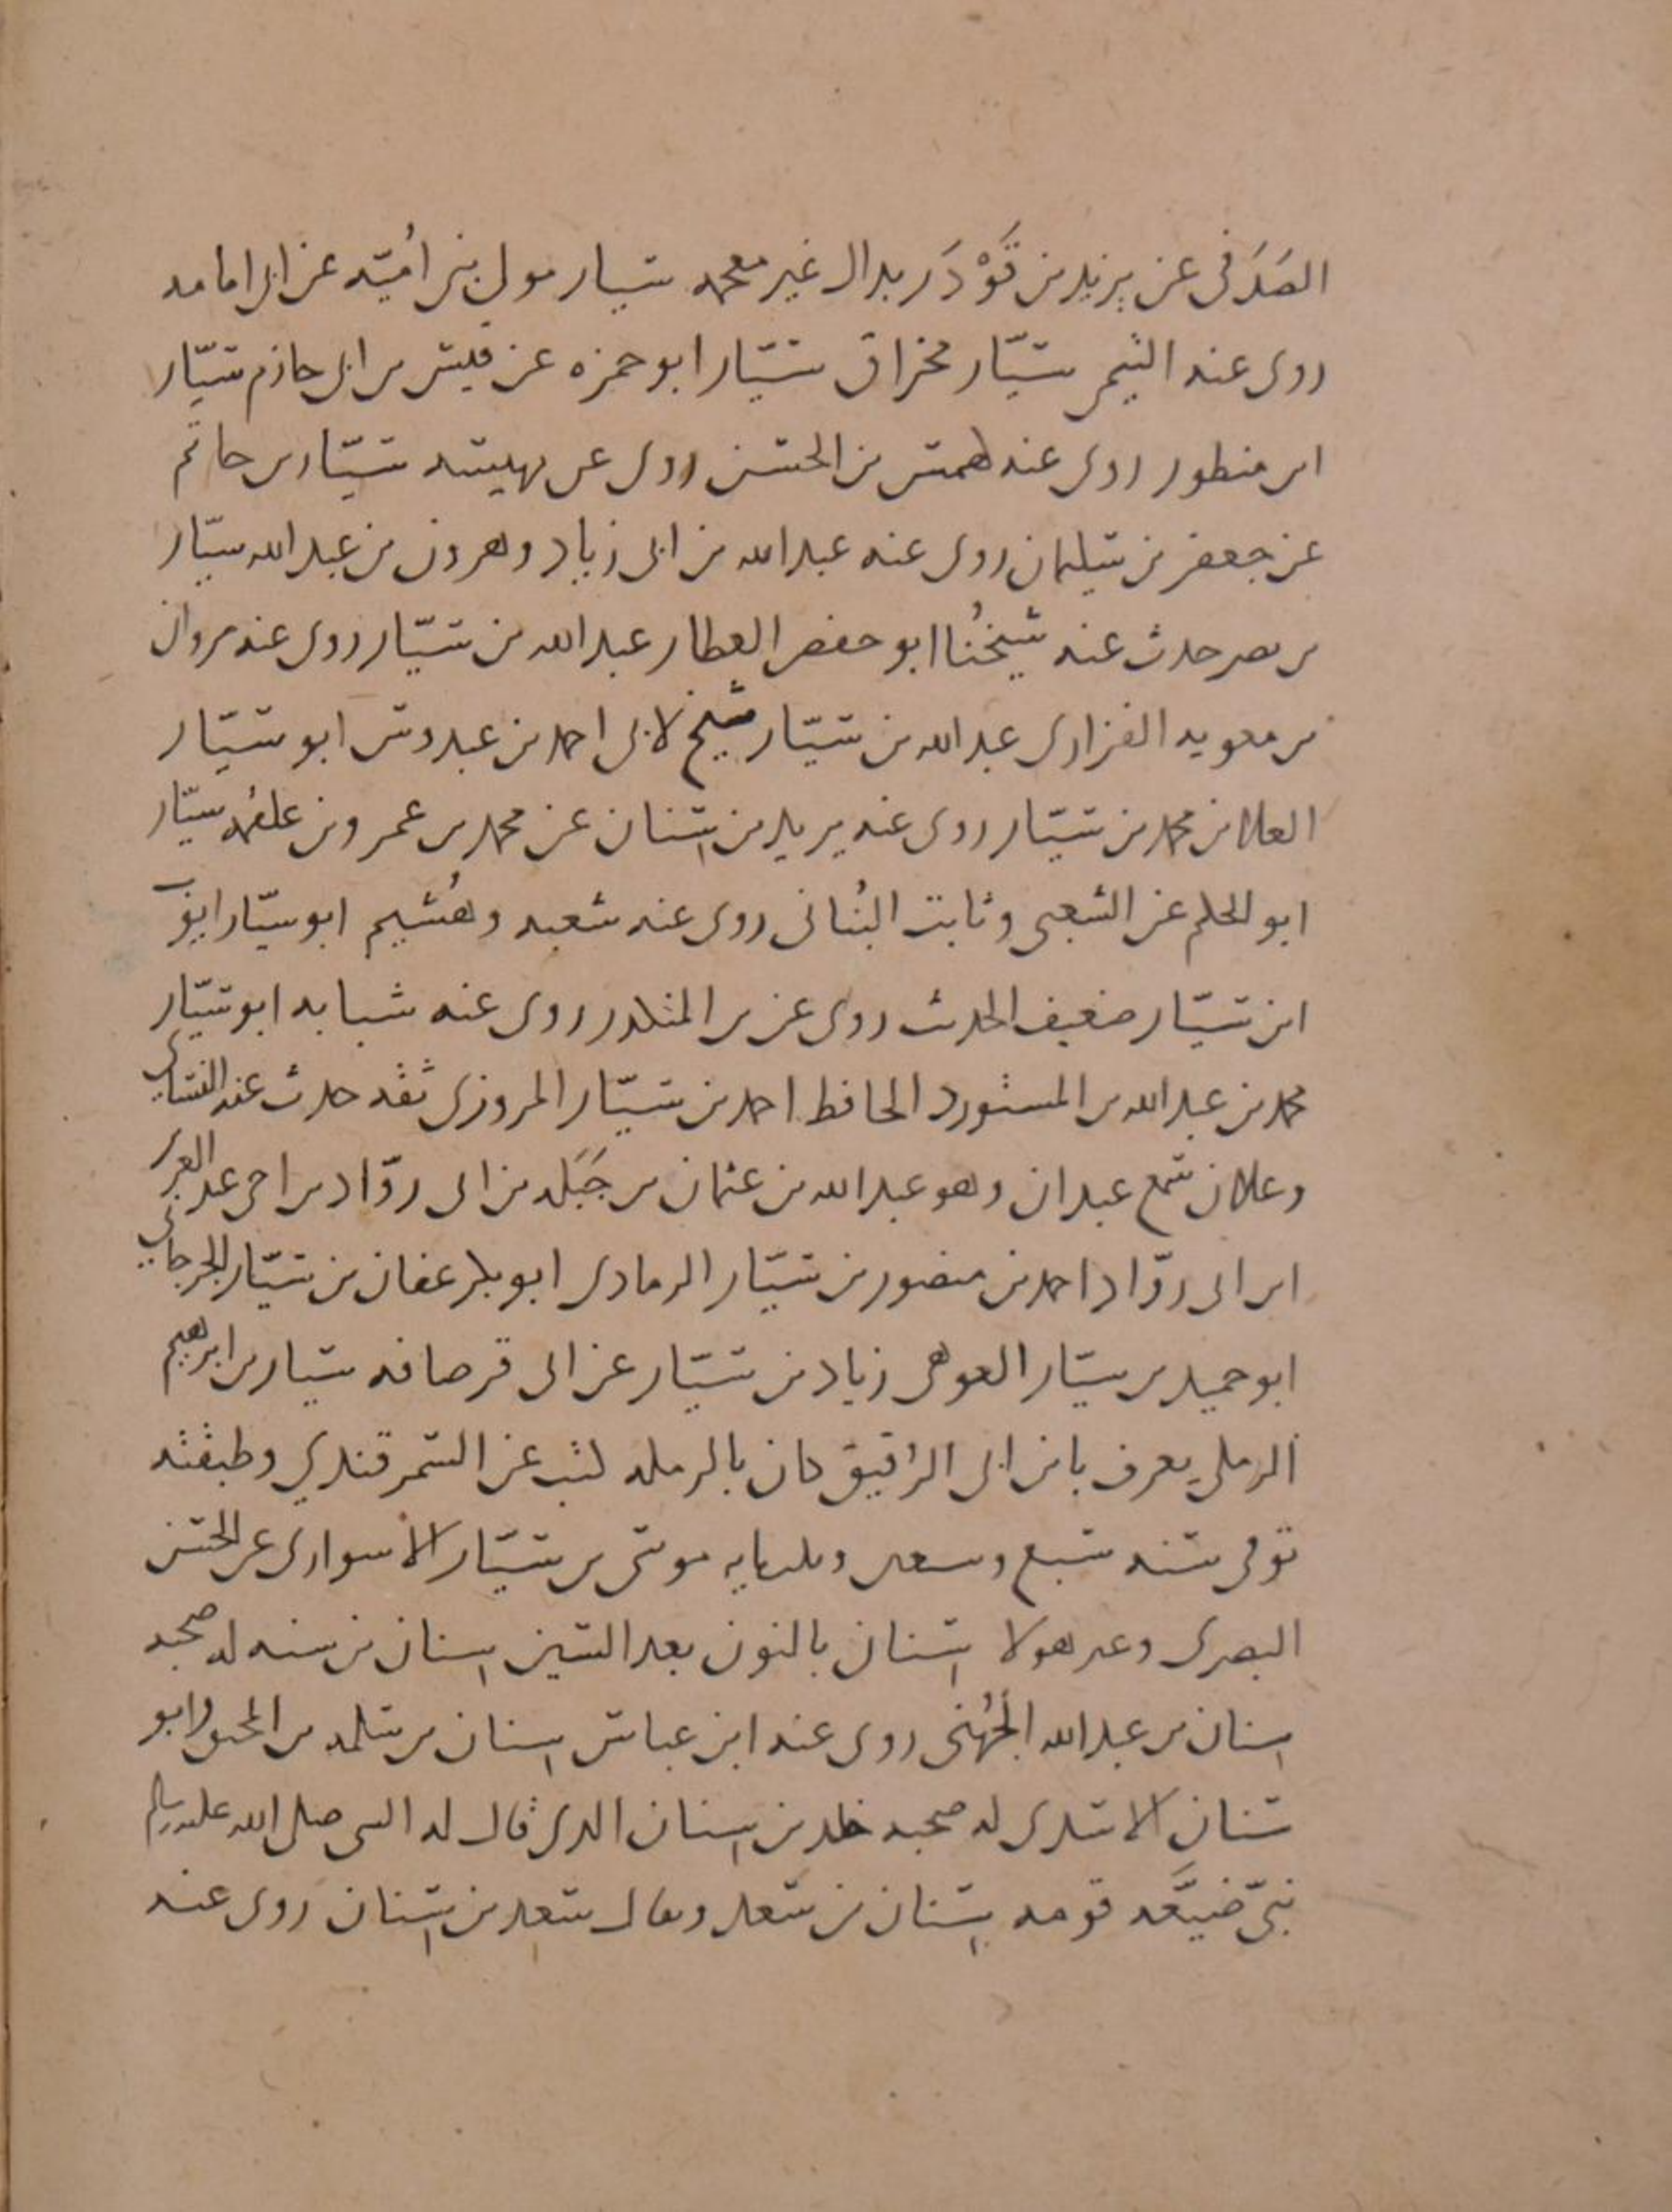 الصَدَفي عن يزيد بن قَوْدَر بدال غير معجمه سيار مولى بني أُميّه عن ابي امامه
روى عنه التيمي سيّار مخراق سيّار ابو حمزه عن قيس بن ابي حازم سيّار
ابن منظور روى عنه كهمس بن الحسن روى عن بهيسه سيّار بن حاتم
عن جعفر بن سليمان روى عنه عبد الله بن ابي زياد وهرون بن عبد الله سيّار
بن نصر حدث عنه شيخُنا ابو حفص العطار عبد الله بن سيّار روى عنه مروان
بن معويه الفزاري عبد الله بن سيّار شيخ لابي احمد بن عبدوس ابو سيّار
العلا بن محمد بن سيّار روى عنه يزيد بن سنان عن محمد بن عمرو بن علقمه سيّار
ابو الحكم عن الشعبي وثابت البُناني روى عنه شعبه وهُشيم ابو سيّار ايوب
ابن سيّار ضعيف الحديث روى عن بن المنكدر روى عنه شبابه ابو سيّار
محمد بن عبد الله بن المستورد الحافظ احمد بن سيّار المروزي ثقه حدث عنه النسائي
وعلان سمع عبدان وهو عبد الله بن عثمان بن جَبَله بن ابي روّاد بن اخي عبد العزيز
ابن ابي روّاد احمد بن منصور بن سيّار الرمادي ابو بكر عفان بن سيّار الجرجاني
ابو حميد بن سيّار العوهي زياد بن سيّار عن ابي قرصافه سيار بن ابرهيم
الرملي يعرف بابن ابي الرقيق كان بالرمله كتب عن السمرقندي وطبقته
توفي سنه سبع وسعين وثلثمايه موسى بن سيّار الاسواري عن الحسن
البصري وغير هولا سنان بالنون بعد السين سنان بن سنه له صحبه
سنان بن عبد الله الجُهني روى عنه ابن عباس سنان بن سلمه بن المحبق وابو
سنان الاسدي له صحبه خلد بن سنان الذي قال له النبي صلى الله عليه وسلم
نبيّ ضيَّعه قومه سنان بن سعد ويقال سعد بن سنان روى عنه